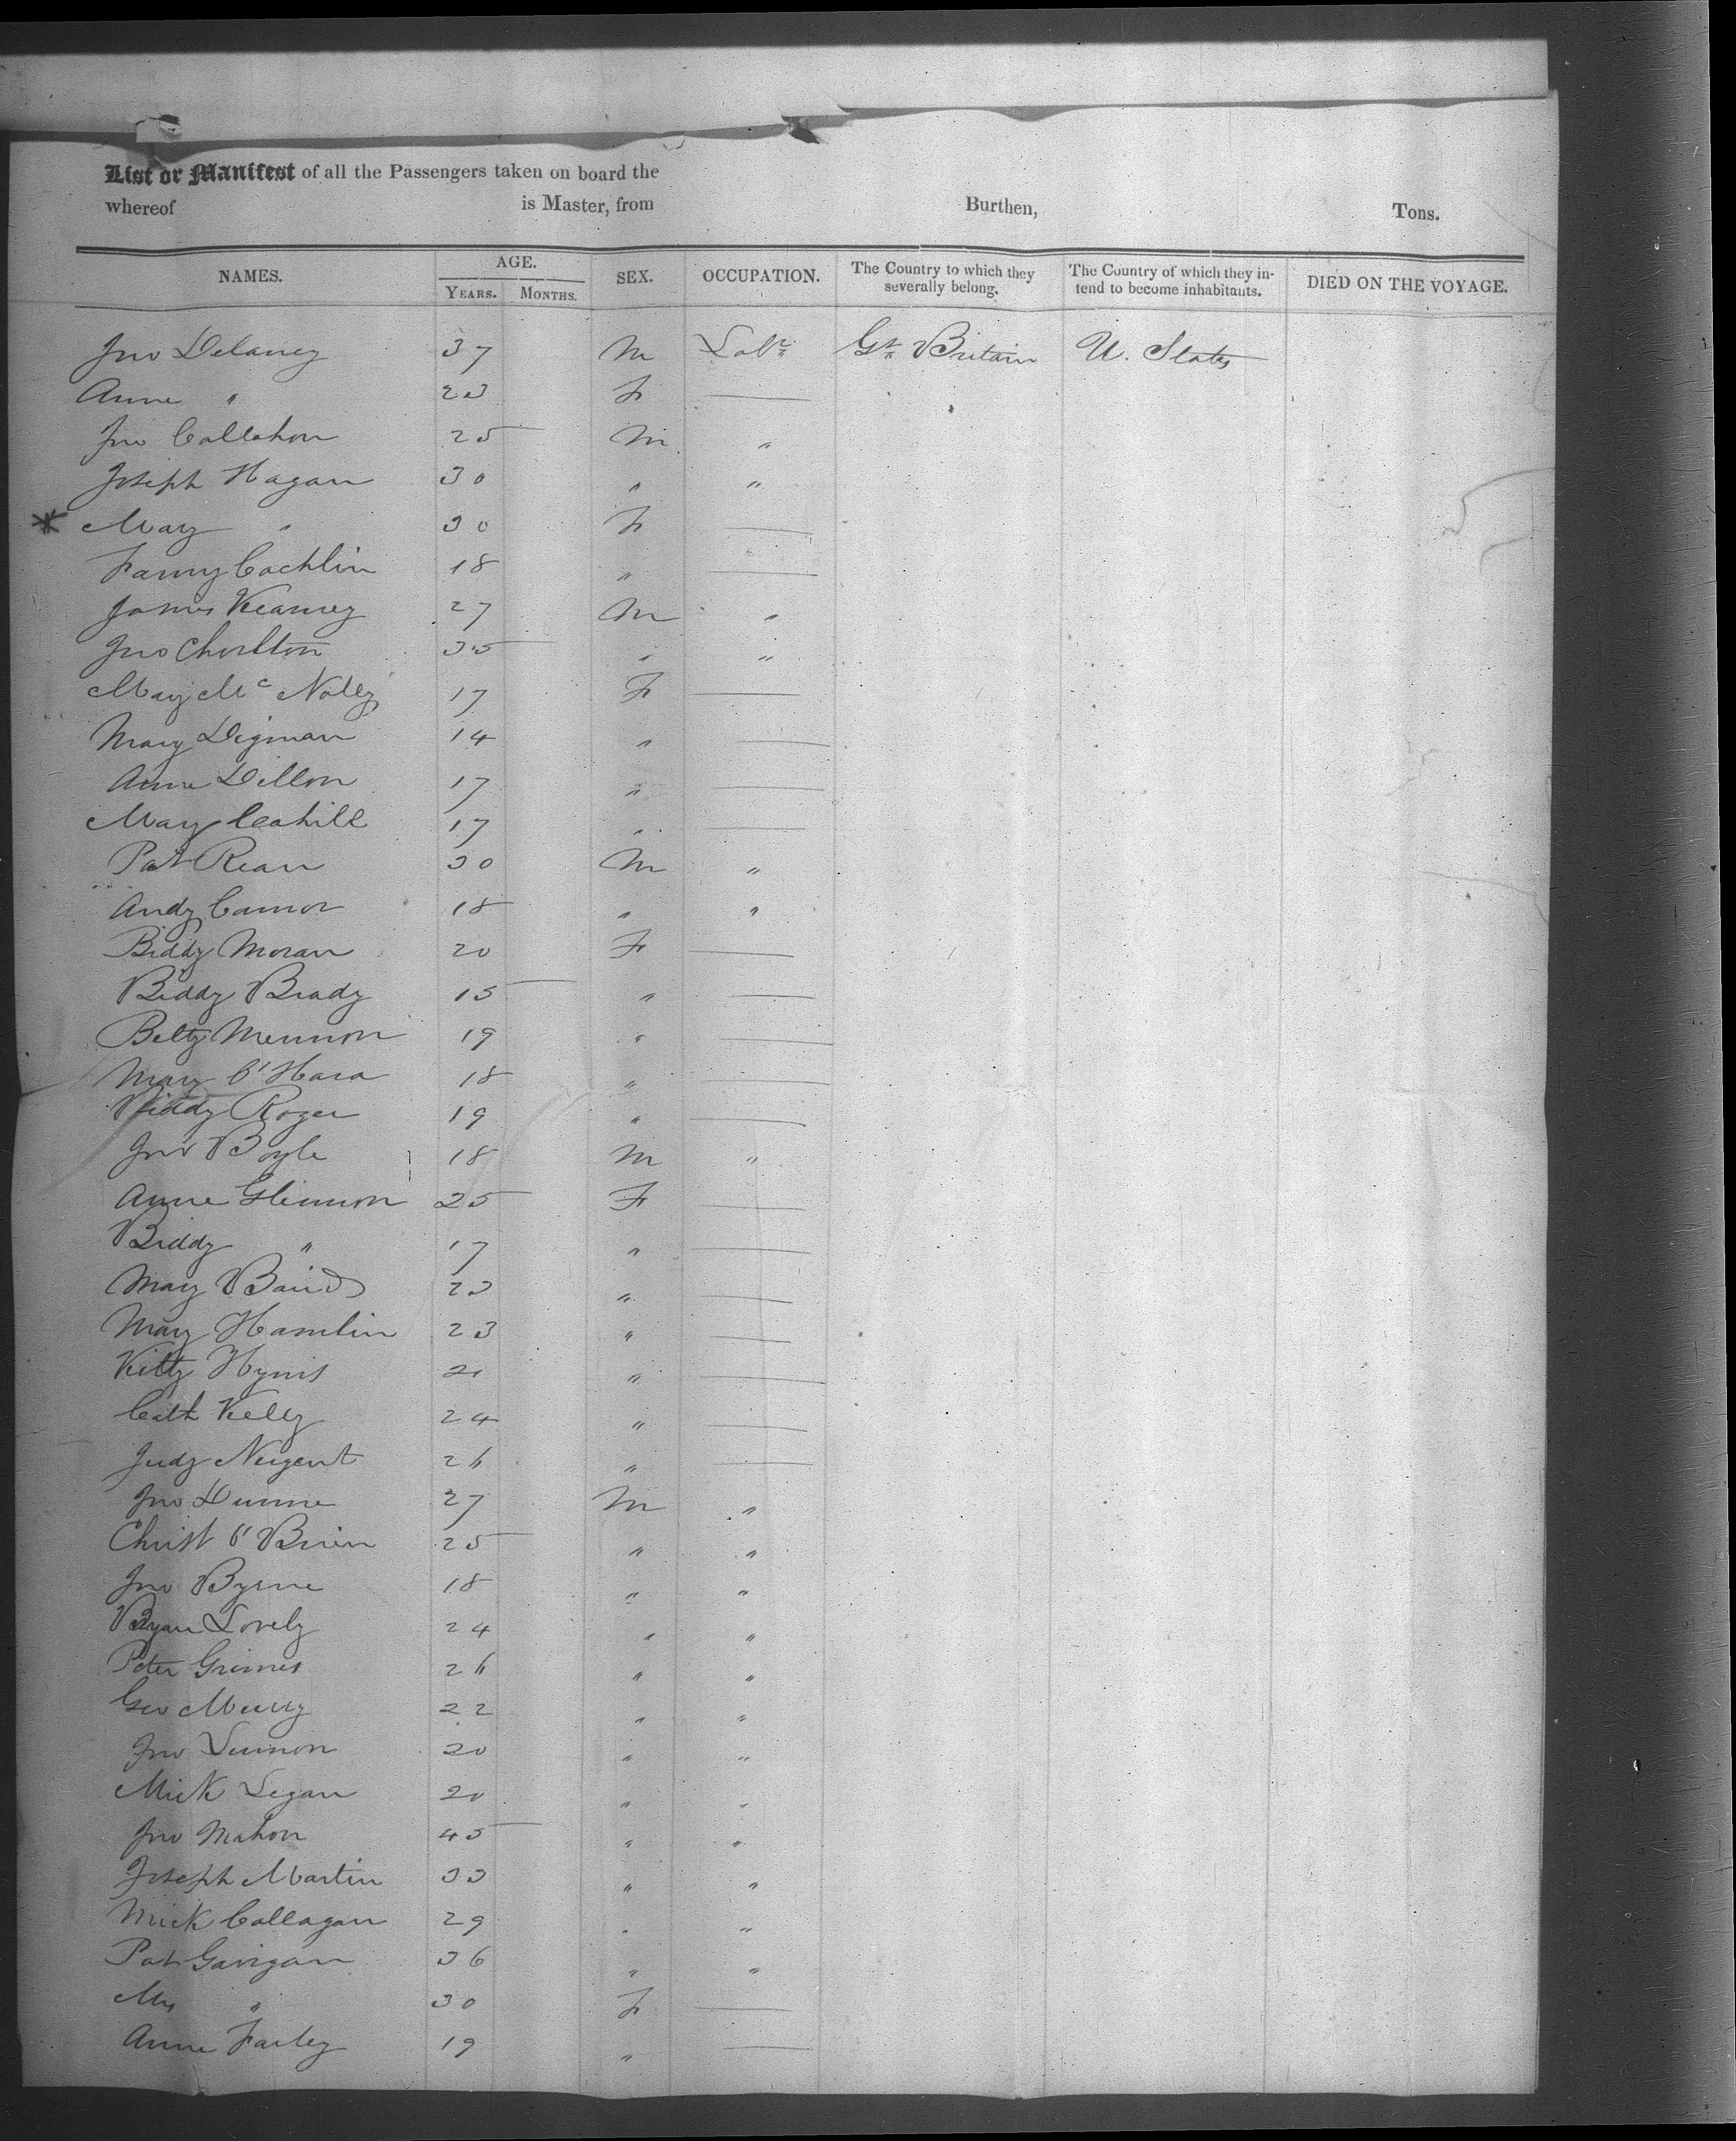 List or Manifest of all the Passengers taken on board the
whereof is Master, from Burthen, Tons.
NAMES. AGE. SEX. OCCUPATION. The Country to which they severally belong. The Country of which they in- tend to become inhabitants. DIED ON THE VOYAGE.
YEARS. MONTHS.
Jno Delaney 37 M Labr Gt Britain U. States
Anne " 23 F —
Jno Callahan 25 M "
Joseph Hagan 30 " "
* Mary " 30 F —
Fanny Cochlin 18 " —
James Kearney 27 M "
Jno Chorlton 35 " "
Mary Mc Nally 17 F —
Mary Digman 14 " —
Anne Dillon 17 " —
Mary Cahill 17 " —
Pat Rean 30 M "
Andy Connor 18 " "
Biddy Moran 20 F —
Biddy Brady 15 " —
Betty Mennon 19 " —
Mary O'Hara 18 " —
Biddy Roger 19 " —
Jno Boyle 18 M "
Anne Glennon 25 F —
Biddy " 17 " —
Mary Baird 23 " —
Mary Hamlin 23 " —
Kitty Hynes 21 " —
Cath Kelly 24 " —
Judy Nugent 26 " —
Jno Dunne 27 M "
Christ O'Brien 25 " "
Jno Byrne 18 " "
Bryan Lovely 24 " "
Peter Grimes 26 " "
Geo Murry 22 " "
Jno Lennon 20 " "
Mick Legan 20 " "
Jno Mahon 45 " "
Joseph Martin 33 " "
Mick Callagan 29 " "
Pat Gavigan 36 " "
Mrs " 30 F —
Anne Farley 19 " —